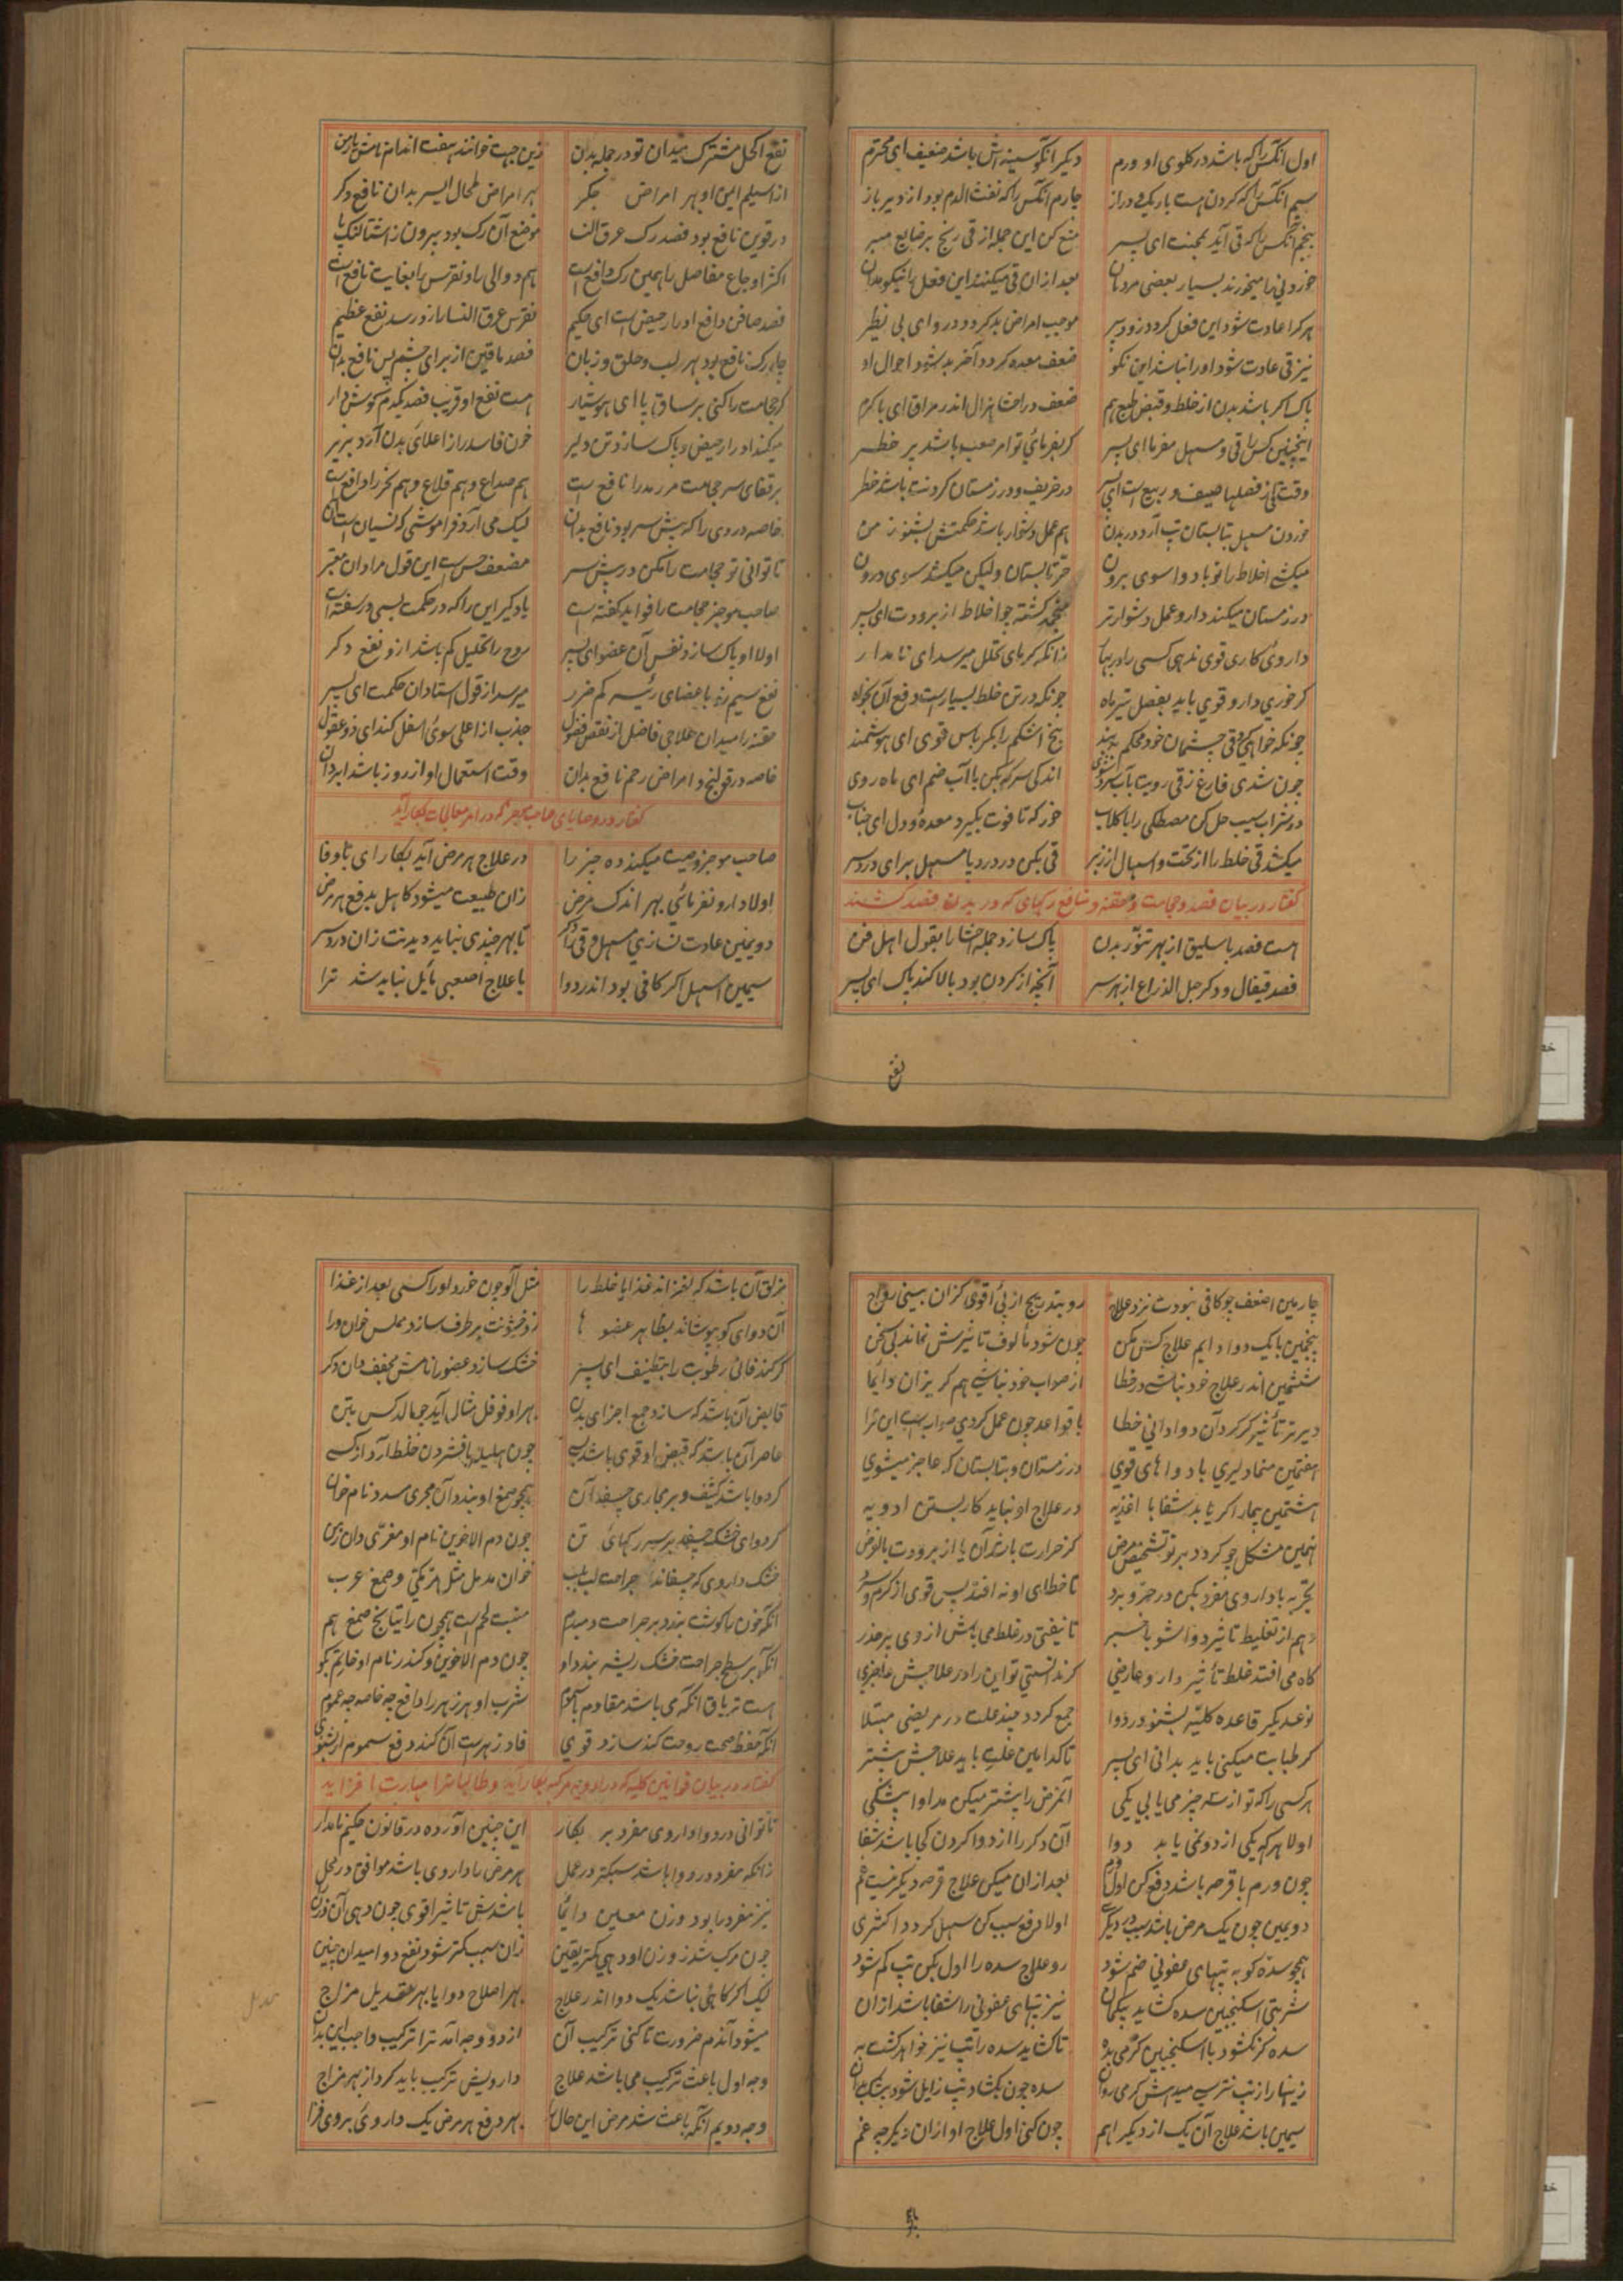 اول آنکس را که باشد در کلوی او ورم دیکر انکو سینه اش باشد ضعیف ای محترم
سیم آنکس را که کردن هست باریک و دراز چارم آنکس را که نفث الدم بود از دیر باز
پنجم آنکس را که قی آید بمحنت ای پسر منع کن این جمله از قی رنج بر ضایع مبر
خوردنی را میخورند بسیار بعضی مردمان بعد از ان قی میکنند این فعل را نیکو مدان
هر کرا عادت شود این فعل کردد زود پیر موجب امراض بد کردد درو ای بی نظیر
نیز قی عادت شود او را نباشد این نکو ضعف معده کردد آخر بد شود احوال او
پاک اکر باشد بدن از خلط و قبض طبع هم ضعف در احشا هزال اندر مراق ای با کرم
اینچنین کس را قی و مسهل مفرما ای پسر کر بفرمائی تو امر صعب باشد پر خطر
وقت قی از فصلها صیف و ربیع است ای پسر در خریف و در زمستان کردنت باشد خطر
خوردن مسهل بتابستان تب آرد در بدن هم عمل دشوار باشد حکمتش بشنو ز من
میکشد اخلاط را نوبا دوا سوی برون حر تابستان ولیکن میکشد سوی درون
در زمستان میکند دارو عمل دشوارتر منجمد کشته چو اخلاط از برودت ای پسر
داروی کاری قوی ندهی کسی را در بهار زانکه کرمای تحلل میرسد ای نامدار
کر خوری دارو قوی باید بفصل تیر ماه چونکه در تن خلط بسیارست دفع آن بخواه
چونکه خواهی کرد قی چشمان خود محکم ببند بیخ اشکم را بکرباس قوی ای هوشمند
چون شدی فارغ ز قی رویت بآب سرد شوی اندکی سرکه بکن با آب ضم ای ماه روی
در شراب سیب حل کن مصطکی را با کلاب خور که تا قوت بکیرد معده و دل ای جناب
میکشد قی خلط را از تحت و اسهال از زبر قی بکن در درد پا مسهل برای درد سر
کفتار در بیان فصد و حجامت و حقنه و منافع رکهای که در بدن فصد کنند
هست فصد باسلیق از بهر تنور بدن پاک سازد جمله احشا را بقول اهل فن
فصد قیفال و دکر حبل الذراع از بهر سر آنچه از کردن بود بالا کند پاک ای پسر
نفع
نفع اکحل مشترک میدان تو در جمله بدن زین جهت خوانند هفت اندام نامش پارسی
از اسیلم ایمن او بهر امراض جکر بهر امراض طحال ایسر بدان نافع دکر
درقوین نافع بود فصد رک عرق النسا موضع آن رک بود بیرون ز اشتالنک پا
اکثر اوجاع مفاصل را همین رک دافع است هم دوالی را و نقرس را بغایت نافع است
فصد صافن دافع ادرار حیض است ای حکیم نقرس عرق النسا را زو رسد نفع عظیم
چار رک نافع بود بهر لب و حلق و زبان فصد ماقین از برای چشم پس نافع بدان
کر حجامت را کنی بر ساق پا ای هوشیار هست نفع او قریب فصد یکدم کوش دار
میکند ادرار حیض و پاک سازد تن دلیر خون فاسد را ز اعلای بدن آرد بزیر
بر قفای سر حجامت مر رمد را نافع ست هم صداع و هم قلاع و هم بخر را دافع ست
خاصه دردی را که پیش سر بود نافع بدان لیک می آرد فراموشی که نسیان است آن
تا توانی تو حجامت را مکن در پیش سر مضعف حس است این قول مرا دان معتبر
صاحب موجز حجامت را فواید کفته است یاد کیر این را که در حکمت بسی در سفته است
اولا او پاک سازد نفس آن عضو ای پسر روح را تحلیل کم باشد ازو نفع دکر
نفع سیم زو باعضای رئیسه کم ضرر میرسد از قول استادان حکمت ای پسر
حقنه را میدان علاجی فاضل از نقص فضول جذب از اعلی سوی اسفل کند ای ذو عقول
خاصه در قولنج و امراض رحم نافع بدان وقت استعمال او از روز باشد ابردان
کفتار در وصایای صاحب موجز که در امر معالجات بکار آید
صاحب موجز وصیت میکند ده چیز را در علاج هر مرض آید بکار ای با وفا
اولا دارو نفرمائی بهر اندک مرض زان طبیعت میشود کاهل بدفع هر مرض
دویمین عادت نسازی مسهل و قی را دکر تا بهر چندی نباید دیدنت زان درد سر
سیمین اسهل اکر کافی بود اندر دوا با علاج اصعبی مایل نباید شد ترا
چارمین اضعف چو کافی نبودت نزد علاج رو بتدریج از پی اقوی کزان بینی رواج
پنجمین با یک دوا دایم علاج کس مکن چون شود مألوف تاثیرش نماند بی سخن
ششمین اندر علاج خود نباشی در خطا از صواب خود نباشی هم کریزان دائما
دیرتر تأثیر کر کرد آن دوا دانی خطا با قواعد چون عمل کردی صواب است این ترا
هفتمین منما دلیری با دواهای قوی در زمستان و بتابستان که عاجز میشوی
هشتمین بیمار اکر یابد شفا با اغذیه در علاج او نباید کار بستن ادویه
نهمین مشکل چو کردد بر تو تشخیص مرض کز حرارت باشد آن یا از برودت بالغرض
تجربه با داروی مفرد بکن در حر و برد تا خطای او نه افتد پس قوی از کرم و سرد
دهم از تغلیط تاثیر دوا شو با خبر تا نیفتی در غلط می باش از وی بر حذر
کاه می افتد غلط تأثیر دارو عارضی کر ندانستی تو این را در علاجش عاجزی
نوع دیکر قاعده کلیه بشنو در دوا جمع کردد چند علت در مریضی مبتلا
کر طبابت میکنی باید بدانی ای پسر تا کدامین علت باید علاجش پیشتر
هر کسی را که تو از سه چیز می یابی یکی آنمرض را پیشتر میکن مداوا بیشکی
اولا هر که یکی از دو نمی یابد دوا آن دکر را از دوا کردن کی باشد شفا
چون ورم با قرحه باشد دفع کن اول ورم بعد از ان میکن علاج قرحه دیکر نیست غم
دویمین چون یک مرض باشد سبب در دیکری اولا دفع سبب کن سهل کردد اکثری
همچو سده کو به تبهای عفونی ضم شود رو علاج سده را اول بکن تب کم شود
شربتی اسکنجبین سده کشاید بیکمان نیز تبهای عفونی را شفا باشد از ان
سده کر نکشود با اسکنجبین کرمی بده تا کشاید سده را تب نیز خواهد کشت به
زینهار از تب نترسی میدهش کرمی روان سده چون بکشاد تب زایل شود بیشک بدان
سیمین باشد علاج آن یک از دیکر اهم چون کنی اول علاج او از ان دیکر چه غم
مزلق آن باشد که لغزاند غذا یا خلط را مثل آلو چون خورد او را کسی بعد از غذا
آن دوای کو بپوشاند بظاهر عضو ها زو خشونت بر طرف سازد مملس خوان ورا
کر کند فانی رطوبت را بتلطیف ای پسر خشک سازد عضو را نامش مجفف دان دکر
قابض آن باشد که سازد جمع اجزای بدن بهر او فوفل مثال آید چو مالد کس بتن
عاصر آن باشد که قبض او قوی باشد بسی چون هلیله با فشردن خلط آرد از کسی
کر دوا باشد کثیف و بر مجاری چسفد آن همچو صمغ او بندد آن مجری سدد نام خوان
کر دوای خشک چسفد بر سر رکهای تن چون دم الاخوین نام او مغری دان ز من
خشک داروی که چسفاند جراحت لب بلب خوان مدمل مثل مر مکی و صمغ عرب
آنکه خون را کوشت بندد بر جراحت دمبدم منبت لحم است همچون راتیانج صمغ هم
آنکه بر سطح جراحت خشک ریشه بندد او چون دم الاخوین و کندر نام او خاتم بکو
هست تریاق آنکه می باشد مقاوم با سموم شرب او هر زهر را دافع چه خاصه چه عموم
آنکه حفظ صحت روحت کند سازد قوی فاد زهر است آن کند دفع سموم ار بشنوی
کفتار در بیان قوانین کلیه که در ادویه مرکبه بکار آید و طالبانرا مهارت افزاید
تا توانی در دوا داروی مفرد بر بکار این چنین آورده در قانون حکیم نامدار
زانکه مفرد در دوا باشد سبکتر در عمل هر مرض را داروی باشد موافق در محل
نیز مفرد را بود وزن معین دائما باشدش تاثیر اقوی چون دهی آن وزن را
چون مرکب شد ز وزن او دهی کمتر یقین زان سبب کمتر شود نفع دوا میدان چنین
لیک اکر کاهی نباشد یک دوا اندر علاج بهر اصلاح دوا یا بهر تعدیل مزاج
میشود آندم ضرورت تا کنی ترکیب آن از دو وجه آمد ترا ترکیب واجب این بدان
وجه اول باعث ترکیب می باشد علاج دارویش ترکیب باید کرد از بهر مزاج
وجه دویم آنکه باعث شد مرض این حال را بهر دفع هر مرض یک داروی بر وی فزا